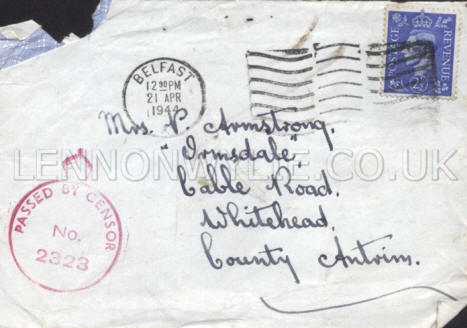 POSTAGE REVENUE
2½
BELFAST
12 30 PM
21 APR
1944
Mrs. P. Armstrong,
"Ormsdale",
Cable Road,
Whitehead,
County Antrim.
LENNONWYLIE.CO.UK
PASSED BY CENSOR
No.
2323